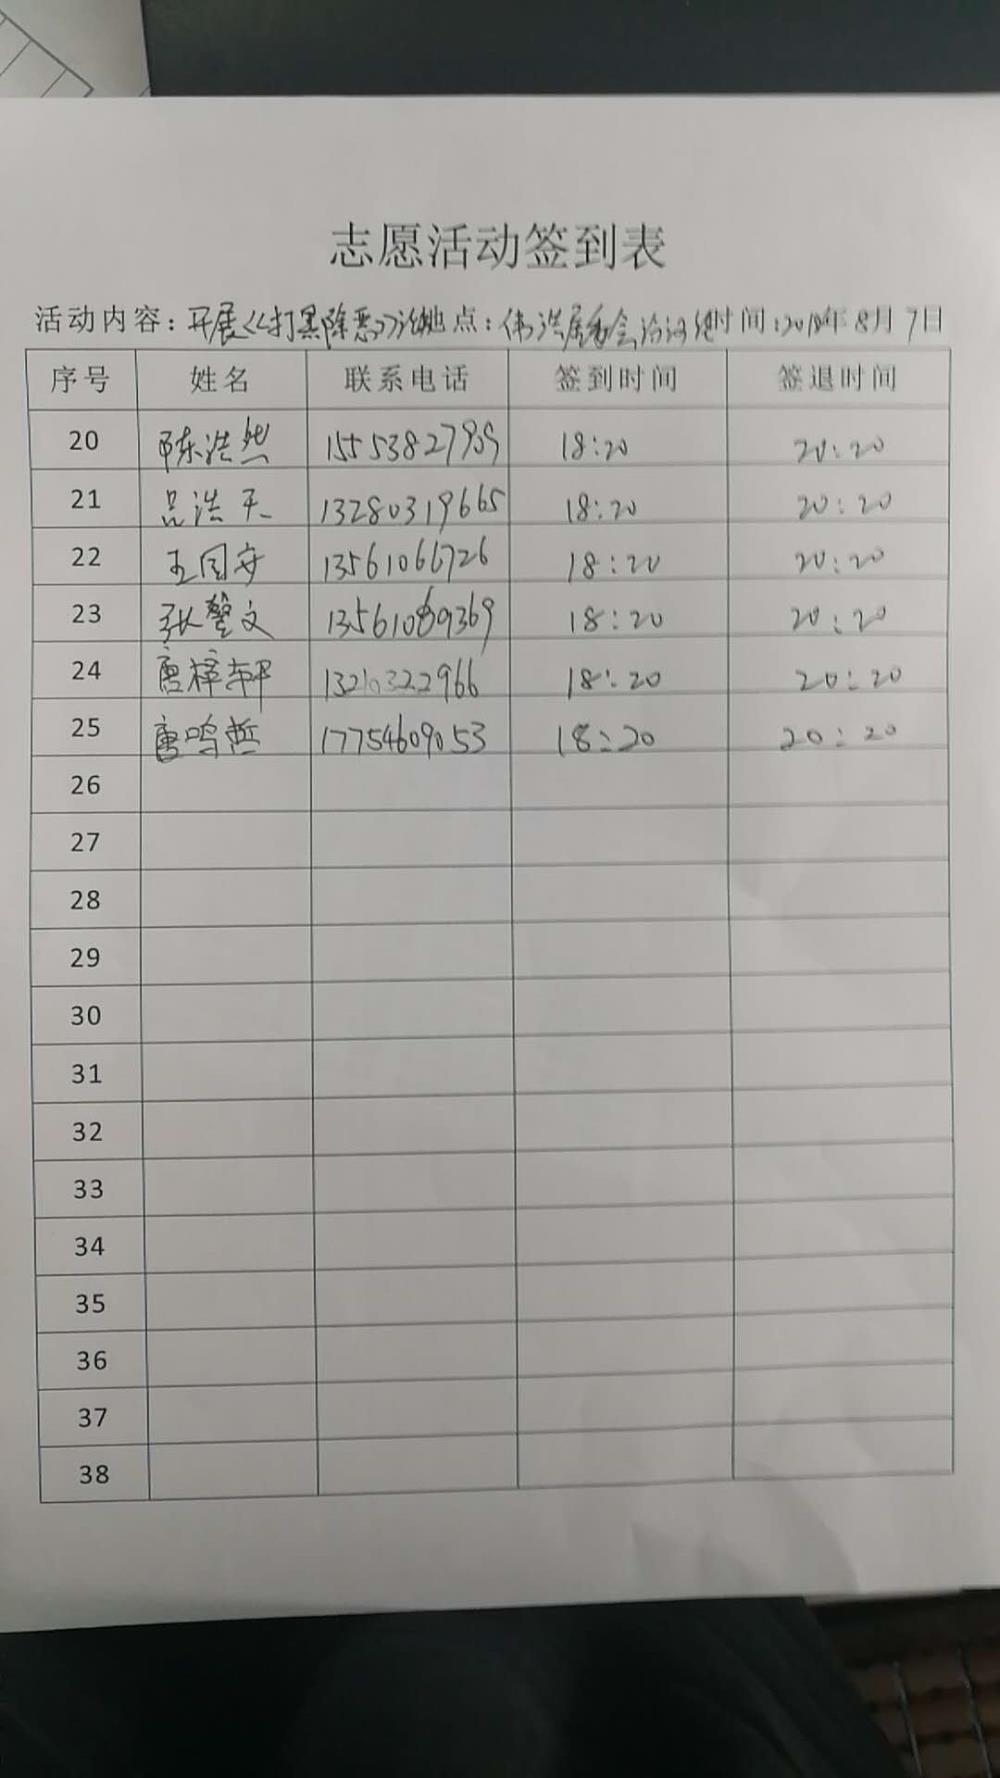 志愿活动签到表
活动内容:开展《打黑除恶》 地点:伟浩居委会洽谈 时间:2018年8月7日
序号 姓名 联系电话 签到时间 签退时间
20 陈浩然 15553827909 18:20 20:20
21 吕浩天 13280319665 18:20 20:20
22 王国安 13561066726 18:20 20:20
23 张馨文 18:20 20:20
24 唐梓轩 13210322966 18:20 20:20
25 唐鸣哲 17754609053 18:20 20:20
26
27
28
29
30
31
32
33
34
35
36
37
38